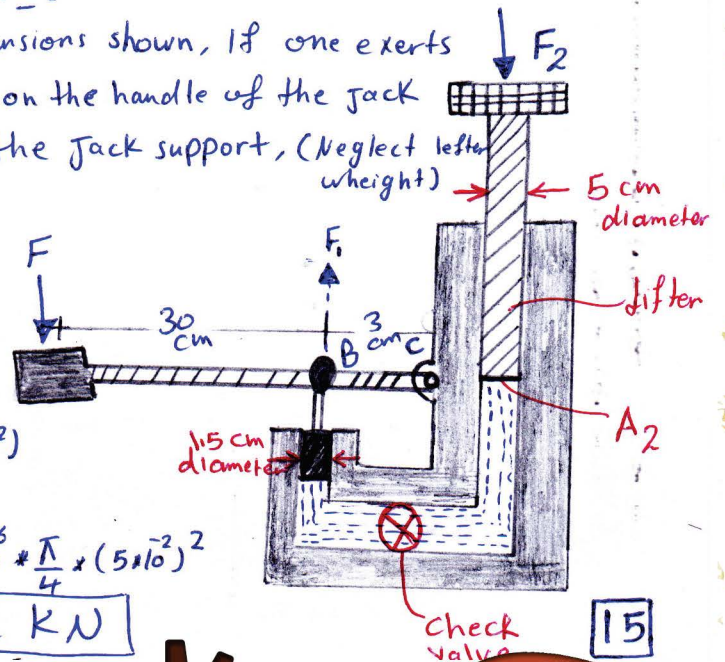 nsions shown, If one exerts
on the handle of the Jack
the Jack support, (Neglect lefter
wheight)
F2
5 cm
diameter
F
F1
30
cm
3
cm
B
C
lifter
A2
1.5 cm
diameter
²)
* π/4 * (5*10⁻²)²
KN
Check
valve
15